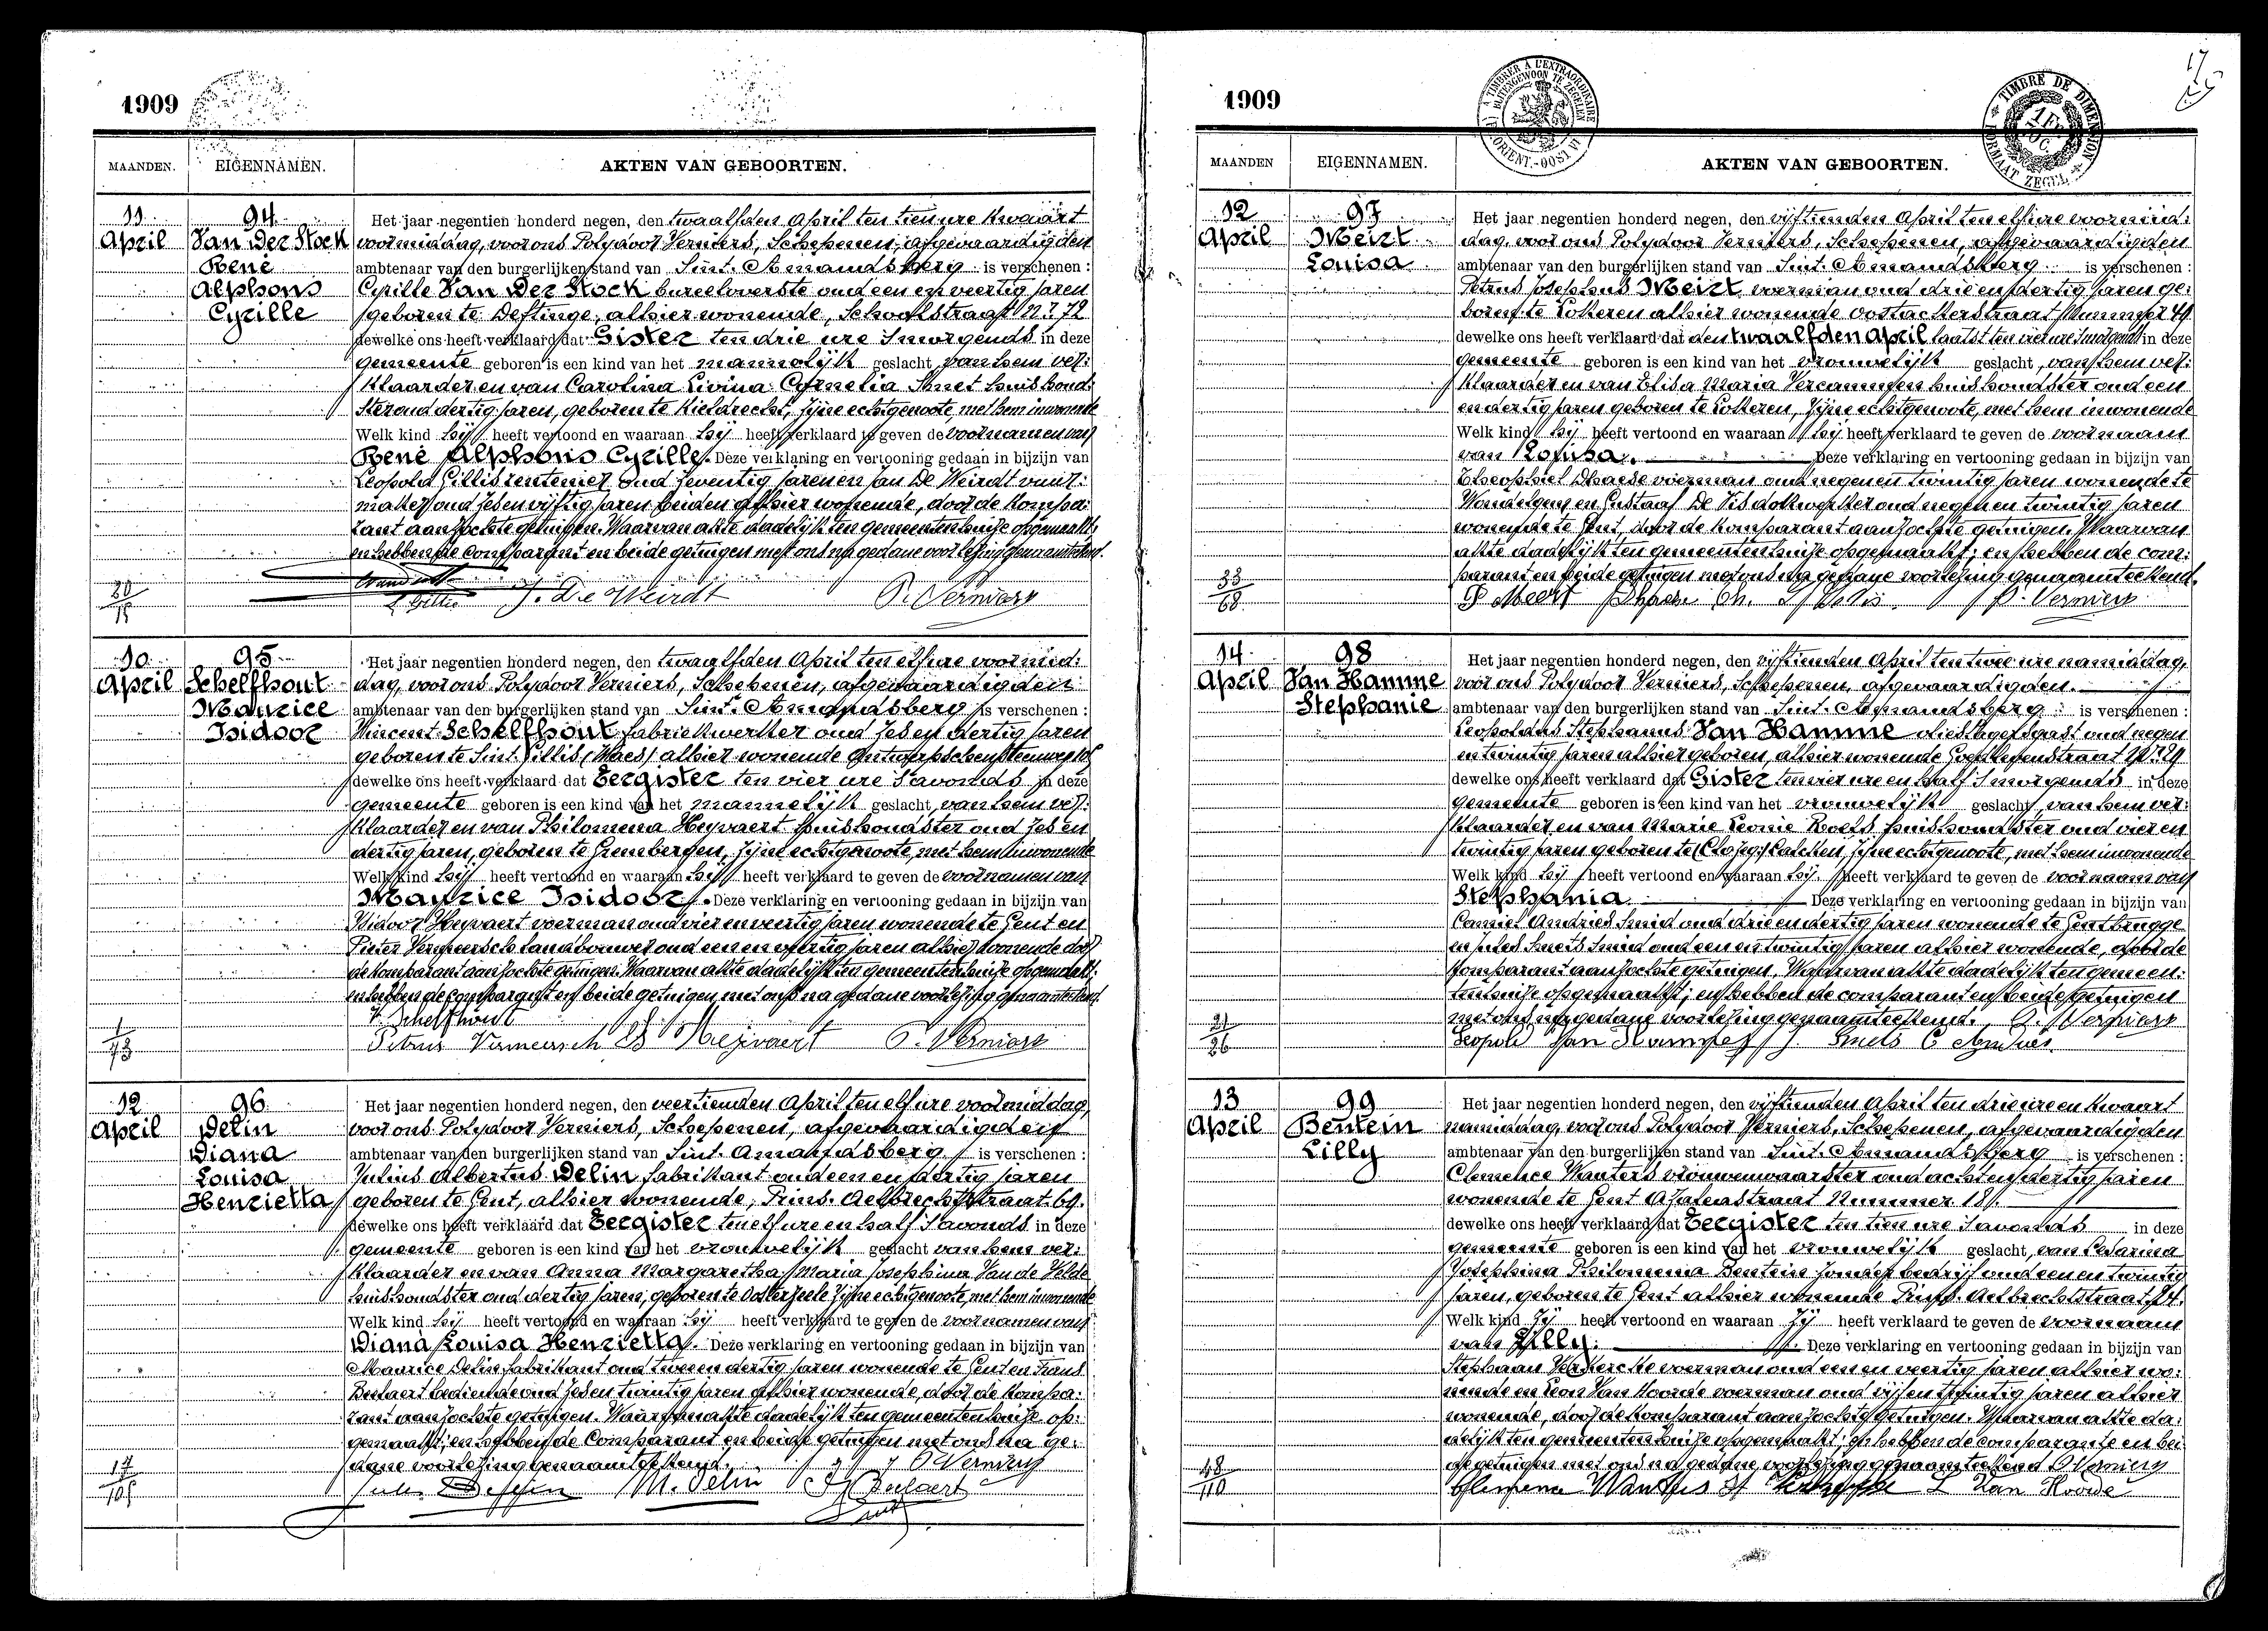 1909
MAANDEN. EIGENNAMEN. AKTEN VAN GEBOORTEN.
11 April
94
Van Der Stock
René
Alphons
Cyrille
Het jaar negentien honderd negen, den twaalfden April ten tien ure kwaart
voormiddag, voor ons Polydoor Verniers, Schepenen, afgevaardigden
ambtenaar van den burgerlijken stand van Sint. Amandsberg is verschenen :
Cyrille Van Der Stock bureeloverste oud een en veertig jaren
geboren te Deftinge, alhier wonende, Schoolstraat n.º 72
dewelke ons heeft verklaard dat Gister ten drie ure 's morgends in deze
gemeente geboren is een kind van het mannelijk geslacht, van hem ver:
klaarder en van Carolina Livina Cornelia Smet huishoud:
ster oud dertig jaren, geboren te Kieldrecht, zijne echtgenoote, met hem inwonende
Welk kind hij heeft vertoond en waaraan hij heeft verklaard te geven de voornamen van
René Alphons Cyrille. Deze verklaring en vertooning gedaan in bijzijn van
Leopold Gillis rentenier oud zeventig jaren en Jan De Weirdt
maker oud zes en vijftig jaren beiden alhier wonende, door de kompa:
rant aanzochte getuigen. Waarvan akte dadelijk ten gemeentenhuize opgemaakt:
en hebben de comparant en beide getuigen met ons na gedane voorlezing genaamteekend.
J. De Weirdt P. Verniers
20/15
10 April
95
Schelfhout
Maurice
Isidoor
Het jaar negentien honderd negen, den twaalfden April ten elf ure voormid:
dag, voor ons Polydoor Verniers, Schepenen, afgevaardigden
ambtenaar van den burgerlijken stand van Sint. Amandsberg is verschenen :
Vincent Schelfhout fabriekwerker oud zes en dertig jaren
geboren te Sint. Gillis (Waes) alhier wonende Antwerpschensteenweg
dewelke ons heeft verklaard dat Eergister ten vier ure 's avonds in deze
gemeente geboren is een kind van het mannelijk geslacht, van hem ver:
klaarder en van Philomena Heyvaert huishoudster oud zes en
dertig jaren, geboren te Grembergen, zijne echtgenoote, met hem inwonende
Welk kind hij heeft vertoond en waaraan hij heeft verklaard te geven de voornamen van
Maurice Isidoor. Deze verklaring en vertooning gedaan in bijzijn van
Isidoor Heyvaert voerman oud vier en veertig jaren wonende te Gent en
Pieter Vermeersch landbouwer oud een en veertig jaren alhier wonende door
de komparant aanzochte getuigen. Waarvan akte dadelijk ten gemeentenhuize opgemaakt:
en hebben de comparant en beide getuigen met ons na gedane voorlezing genaamteekend.
V. Schelfhout
Petrus Vermeersch Heyvaert P. Verniers
1/73
12 April
96
Delin
Diana
Louisa
Henrietta
Het jaar negentien honderd negen, den veertienden April ten elf ure voormiddag,
voor ons Polydoor Verniers, Schepenen, afgevaardigden
ambtenaar van den burgerlijken stand van Sint. Amandsberg is verschenen :
Julius Albertus Delin, fabrikant oud een en dertig jaren
geboren te Gent, alhier wonende, Prins. Aelbrechtstraat 69.
dewelke ons heeft verklaard dat Eergister ten elf ure en half 's avonds in deze
gemeente geboren is een kind van het vrouwelijk geslacht van hem ver:
klaarder en van Anna Margaretha Maria Josephina Van de Velde
huishoudster oud dertig jaren, geboren te Oosterzeele zijne echtgenoote, met hem inwonende
Welk kind hij heeft vertoond en waaraan hij heeft verklaard te geven de voornamen van
Diana Louisa Henrietta. Deze verklaring en vertooning gedaan in bijzijn van
Maurice Delin fabrikant oud twee en dertig jaren wonende te Gent en Frans
bediende oud zes en twintig jaren alhier wonende, door de kompa:
rant aanzochte getuigen. Waarvan akte dadelijk ten gemeentenhuize op:
gemaakt; en hebben de Comparant en beide getuigen met ons na ge:
dane voorlezing genaamteekend. P. Verniers
M. Delin
17/105
1909
MAANDEN EIGENNAMEN. AKTEN VAN GEBOORTEN.
TIMBRE DE DIMENSION
FORMAAT ZEGEL
12 April
97
Meirt
Louisa
Het jaar negentien honderd negen, den vijftienden April ten elf ure voormid:
dag, voor ons Polydoor Verniers, Schepenen, afgevaardigden
ambtenaar van den burgerlijken stand van Sint. Amandsberg is verschenen :
Petrus Josephus Meirt, voerman oud drie en dertig jaren ge:
boren te Lokeren alhier wonende Oostackerstraat Nummer 49
dewelke ons heeft verklaard dat den twaalfden April laatst ten vier ure 's morgends in deze
gemeente geboren is een kind van het vrouwelijk geslacht, van hem ver:
klaarder en van Elisa Maria Vercammen huishoudster oud een
en dertig jaren geboren te Lokeren, zijne echtgenoote, met hem inwonende
Welk kind hij heeft vertoond en waaraan hij heeft verklaard te geven de voornaam
van Louisa. Deze verklaring en vertooning gedaan in bijzijn van
Theophiel Dhaese voerman oud negen en twintig jaren wonende te
Wondelgem en Gustaaf De Vis dokwerker oud negen en twintig jaren
wonende te Gent, door de komparant aanzochte getuigen. Waarvan
akte dadelijk ten gemeentenhuize opgemaakt; en hebben de com:
parant en beide getuigen met ons na gedane voorlezing genaamteekend.
P Meert P. Verniers
33/68
14 April
98
Van Hamme
Stephanie
Het jaar negentien honderd negen, den vijftienden April ten twee ure namiddag,
voor ons Polydoor Verniers, Schepenen, afgevaardigden.
ambtenaar van den burgerlijken stand van Sint. Amandsberg is verschenen :
Leopoldus Stephanus Van Hamme oud negen
en twintig jaren alhier geboren, alhier wonende
dewelke ons heeft verklaard dat Gister ten vier ure en half 's morgends in deze
gemeente geboren is een kind van het vrouwelijk geslacht, van hem ver:
klaarder en van Marie Leonie Roels huishoudster oud vier en
twintig jaren geboren te zijne echtgenoote, met hem inwonende
Welk kind hij heeft vertoond en waaraan hij heeft verklaard te geven de voornaam van
Stephania. Deze verklaring en vertooning gedaan in bijzijn van
Camiel Andries smid oud drie en dertig jaren wonende te Gentbrugge
en Jules Smets smid oud een en twintig jaren alhier wonende, door de
komparant aanzochte getuigen. Waarvan akte dadelijk ten gemeen:
tenhuize opgemaakt; en hebben de comparant en beide getuigen
met ons na gedane voorlezing genaamteekend. P. Verniers
Leopold Van Hamme J. Smets C Andries
21/26
13 April
99
Bentein
Lilly
Het jaar negentien honderd negen, den vijftienden April ten drie ure en kwaart
namiddag, voor ons Polydoor Verniers, Schepenen, afgevaardigden
ambtenaar van den burgerlijken stand van Sint. Amandsberg is verschenen :
Clemence Wauters vrouwenwaarster oud acht en dertig jaren
wonende te Gent Azaleastraat Nummer 18.
dewelke ons heeft verklaard dat Eergister ten tien ure 's avonds in deze
gemeente geboren is een kind van het vrouwelijk geslacht, van Cesarina
Josephina Philomena Bentein zonder bedrijf oud een en twintig
jaren, geboren te Gent alhier wonende Prins. Aelbrechtstraat 24.
Welk kind zij heeft vertoond en waaraan zij heeft verklaard te geven de voornaam
van Lilly. Deze verklaring en vertooning gedaan in bijzijn van
Stephaan Verkercke voerman oud een en veertig jaren alhier wo:
nende en Leon Van Hoorde voerman oud vijf en twintig jaren alhier
wonende, door de komparant aanzochte getuigen. Waarvan akte da:
delijk ten gemeentenhuize opgemaakt; en hebben de comparante en bei:
de getuigen met ons na gedane voorlezing genaamteekend P. Verniers
Clemence Wauters L Van Hoorde
48/110